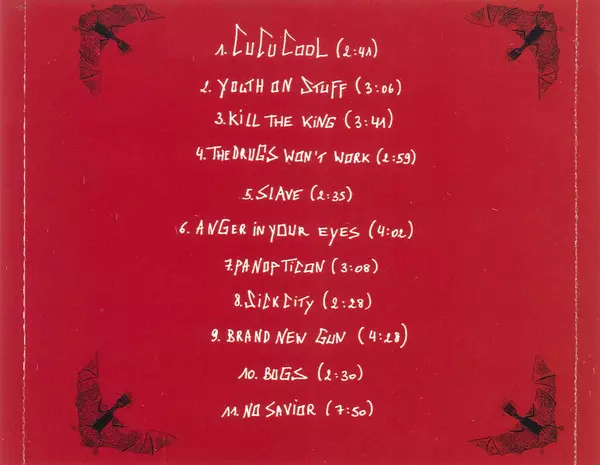 1. CUCU COOL (2:41)
2. YOUTH ON STUFF (3:06)
3. KILL THE KING (3:41)
4. THE DRUGS WON'T WORK (2:59)
5. SLAVE (2:35)
6. ANGER IN YOUR EYES (4:02)
7. PANOPTICON (3:08)
8. SICK CITY (2:28)
9. BRAND NEW GUN (4:28)
10. BUGS (2:30)
11. NO SAVIOR (7:50)